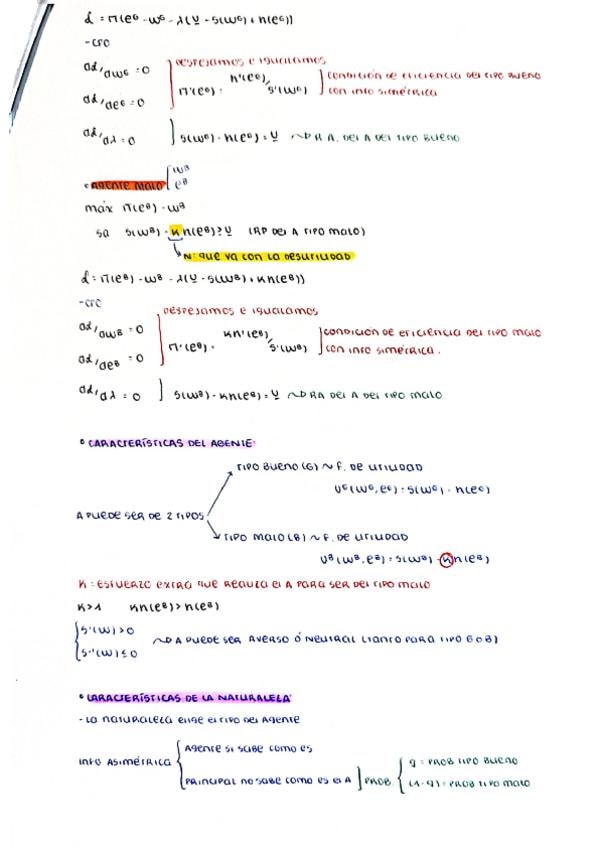 L = π(eᴳ - wᴳ - λ(U - s(wᴳ) + n(eᴳ))
- CPO
∂L/∂wᴳ = 0
∂L/∂eᴳ = 0
DESPEJAMOS E IGUALAMOS
π'(eᴳ) = n'(eᴳ)/s'(wᴳ)
CONDICIÓN DE EFICIENCIA DEL TIPO BUENO
CON INFO SIMÉTRICA
∂L/∂λ = 0
s(wᴳ) - n(eᴳ) = U ~D RA DEL A DEL TIPO BUENO
• AGENTE MALO { wᴮ
eᴮ
máx π(eᴮ) - wᴮ
sa s(wᴮ) - Kn(eᴮ) ≥ U (RP DEL A TIPO MALO)
Nº QUE VA CON LA DESUTILIDAD
L = π(eᴮ) - wᴮ - λ(U - s(wᴮ) + Kn(eᴮ))
- CPO
∂L/∂wᴮ = 0
∂L/∂eᴮ = 0
DESPEJAMOS E IGUALAMOS
π'(eᴮ) = Kn'(eᴮ)/s'(wᴮ)
CONDICIÓN DE EFICIENCIA DEL TIPO MALO
CON INFO SIMÉTRICA.
∂L/∂λ = 0
s(wᴮ) - Kn(eᴮ) = U ~D RA DEL A DEL TIPO MALO
• CARACTERÍSTICAS DEL AGENTE:
TIPO BUENO (G) ~ F. DE UTILIDAD
Uᴳ(wᴳ, eᴳ) = s(wᴳ) - n(eᴳ)
A PUEDE SER DE 2 TIPOS:
TIPO MALO (B) ~ F. DE UTILIDAD
Uᴮ(wᴮ, eᴮ) = s(wᴮ) - Kn(eᴮ)
K = ESFUERZO EXTRA QUE REALIZA EL A PARA SER DEL TIPO MALO
K>1 Kn(eᴮ) > n(eᴮ)
s'(w) > 0
s''(w) ≤ 0
~D A PUEDE SER AVERSO Ó NEUTRAL (TANTO PARA TIPO G O B)
• CARACTERÍSTICAS DE LA NATURALEZA:
- LA NATURALEZA ELIGE EL TIPO DEL AGENTE
INFO ASIMÉTRICA
AGENTE SI SABE COMO ES
PRINCIPAL NO SABE COMO ES EL A
PROB.
q = PROB TIPO BUENO
(1-q) = PROB TIPO MALO